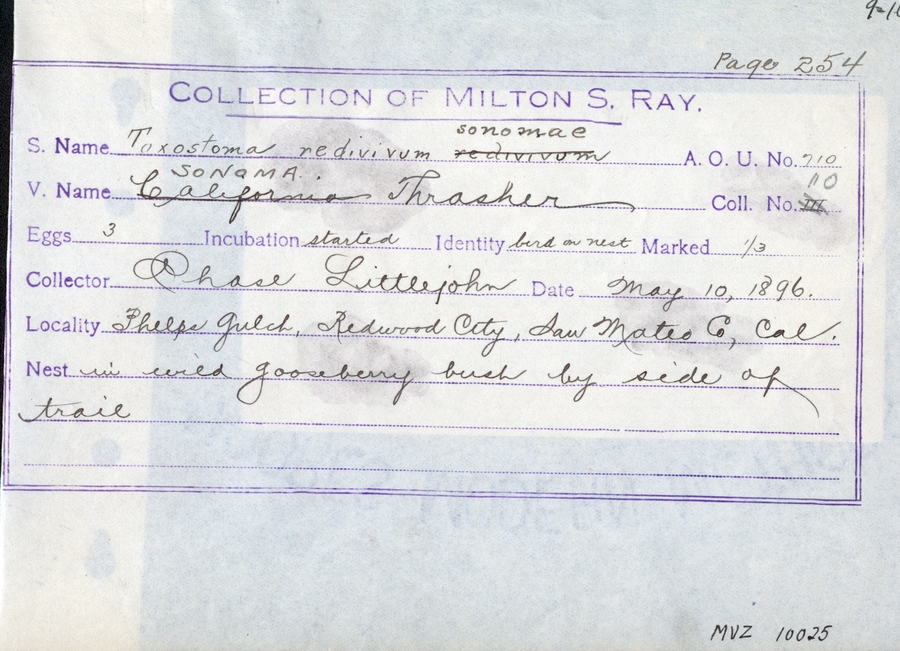 Page 254
COLLECTION OF MILTON S. RAY.
sonomae
S. Name Toxostoma redivivum redivivum A. O. U. No. 710
SONOMA. 110
V. Name California Thrasher Coll. No. III
Eggs 3 Incubation started Identity bird on nest Marked 1/3
Collector Chase Littlejohn Date May 10, 1896.
Locality Phelps Gulch, Redwood City, San Mateo Co, Cal.
Nest in wild gooseberry bush by side of
trail
MVZ 10025